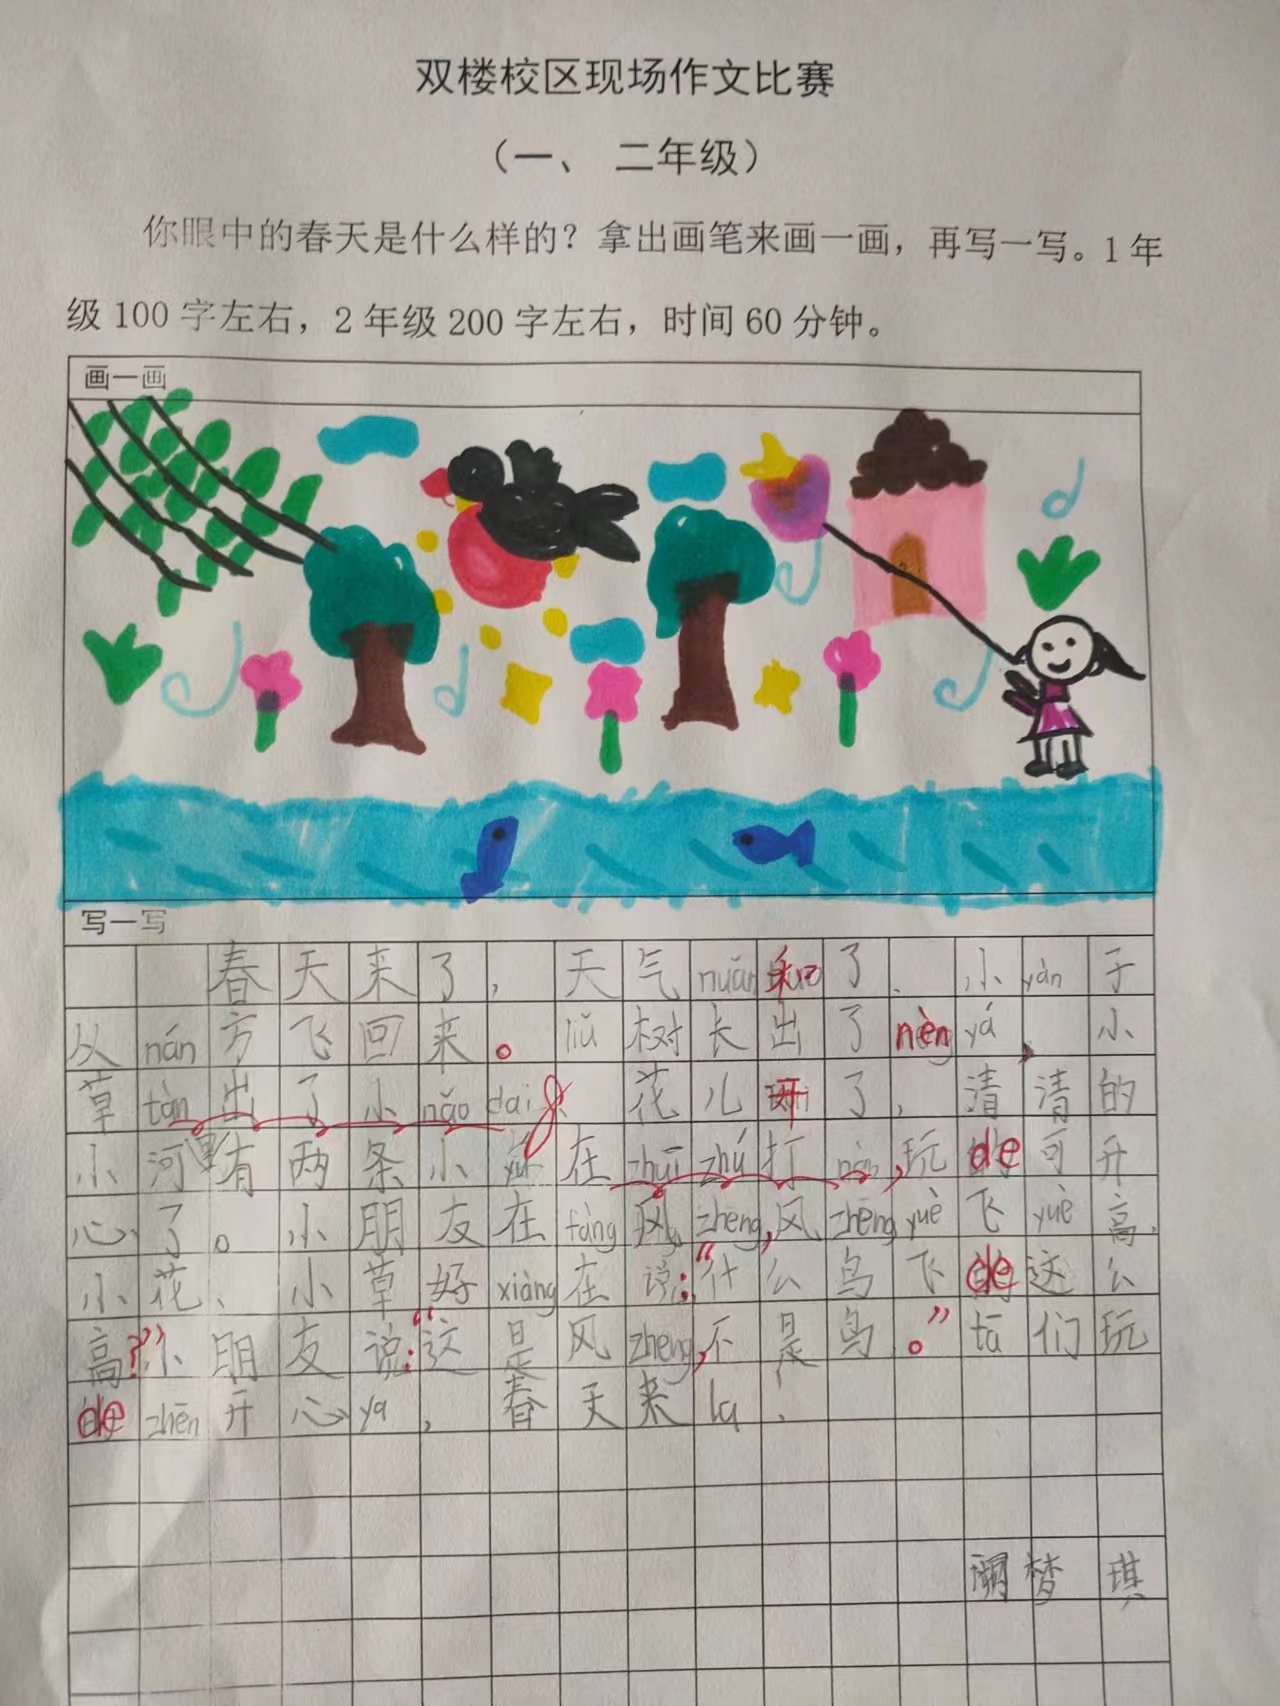 双楼校区现场作文比赛
（一、 二年级）
你眼中的春天是什么样的？拿出画笔来画一画，再写一写。1年
级100字左右，2年级200字左右，时间60分钟。
画一画
写一写
春天来了，天气nuǎn和了．小yàn子
从nán方飞回来。liǔ树长出了nèn yá，小
草tàn出了小nǎo dai，花儿开了，清清的
小河里有两条小yú在zhuī zhú打nào，玩de可开
心了。小朋友在fàng风zheng，风zheng yuè飞yuè高，
小花、小草好xiàng在说：“什么鸟飞de这么
高？”小朋友说：“这是风zheng，不是鸟。”tā们玩
de zhēn开心ya，春天来la！
梦琪